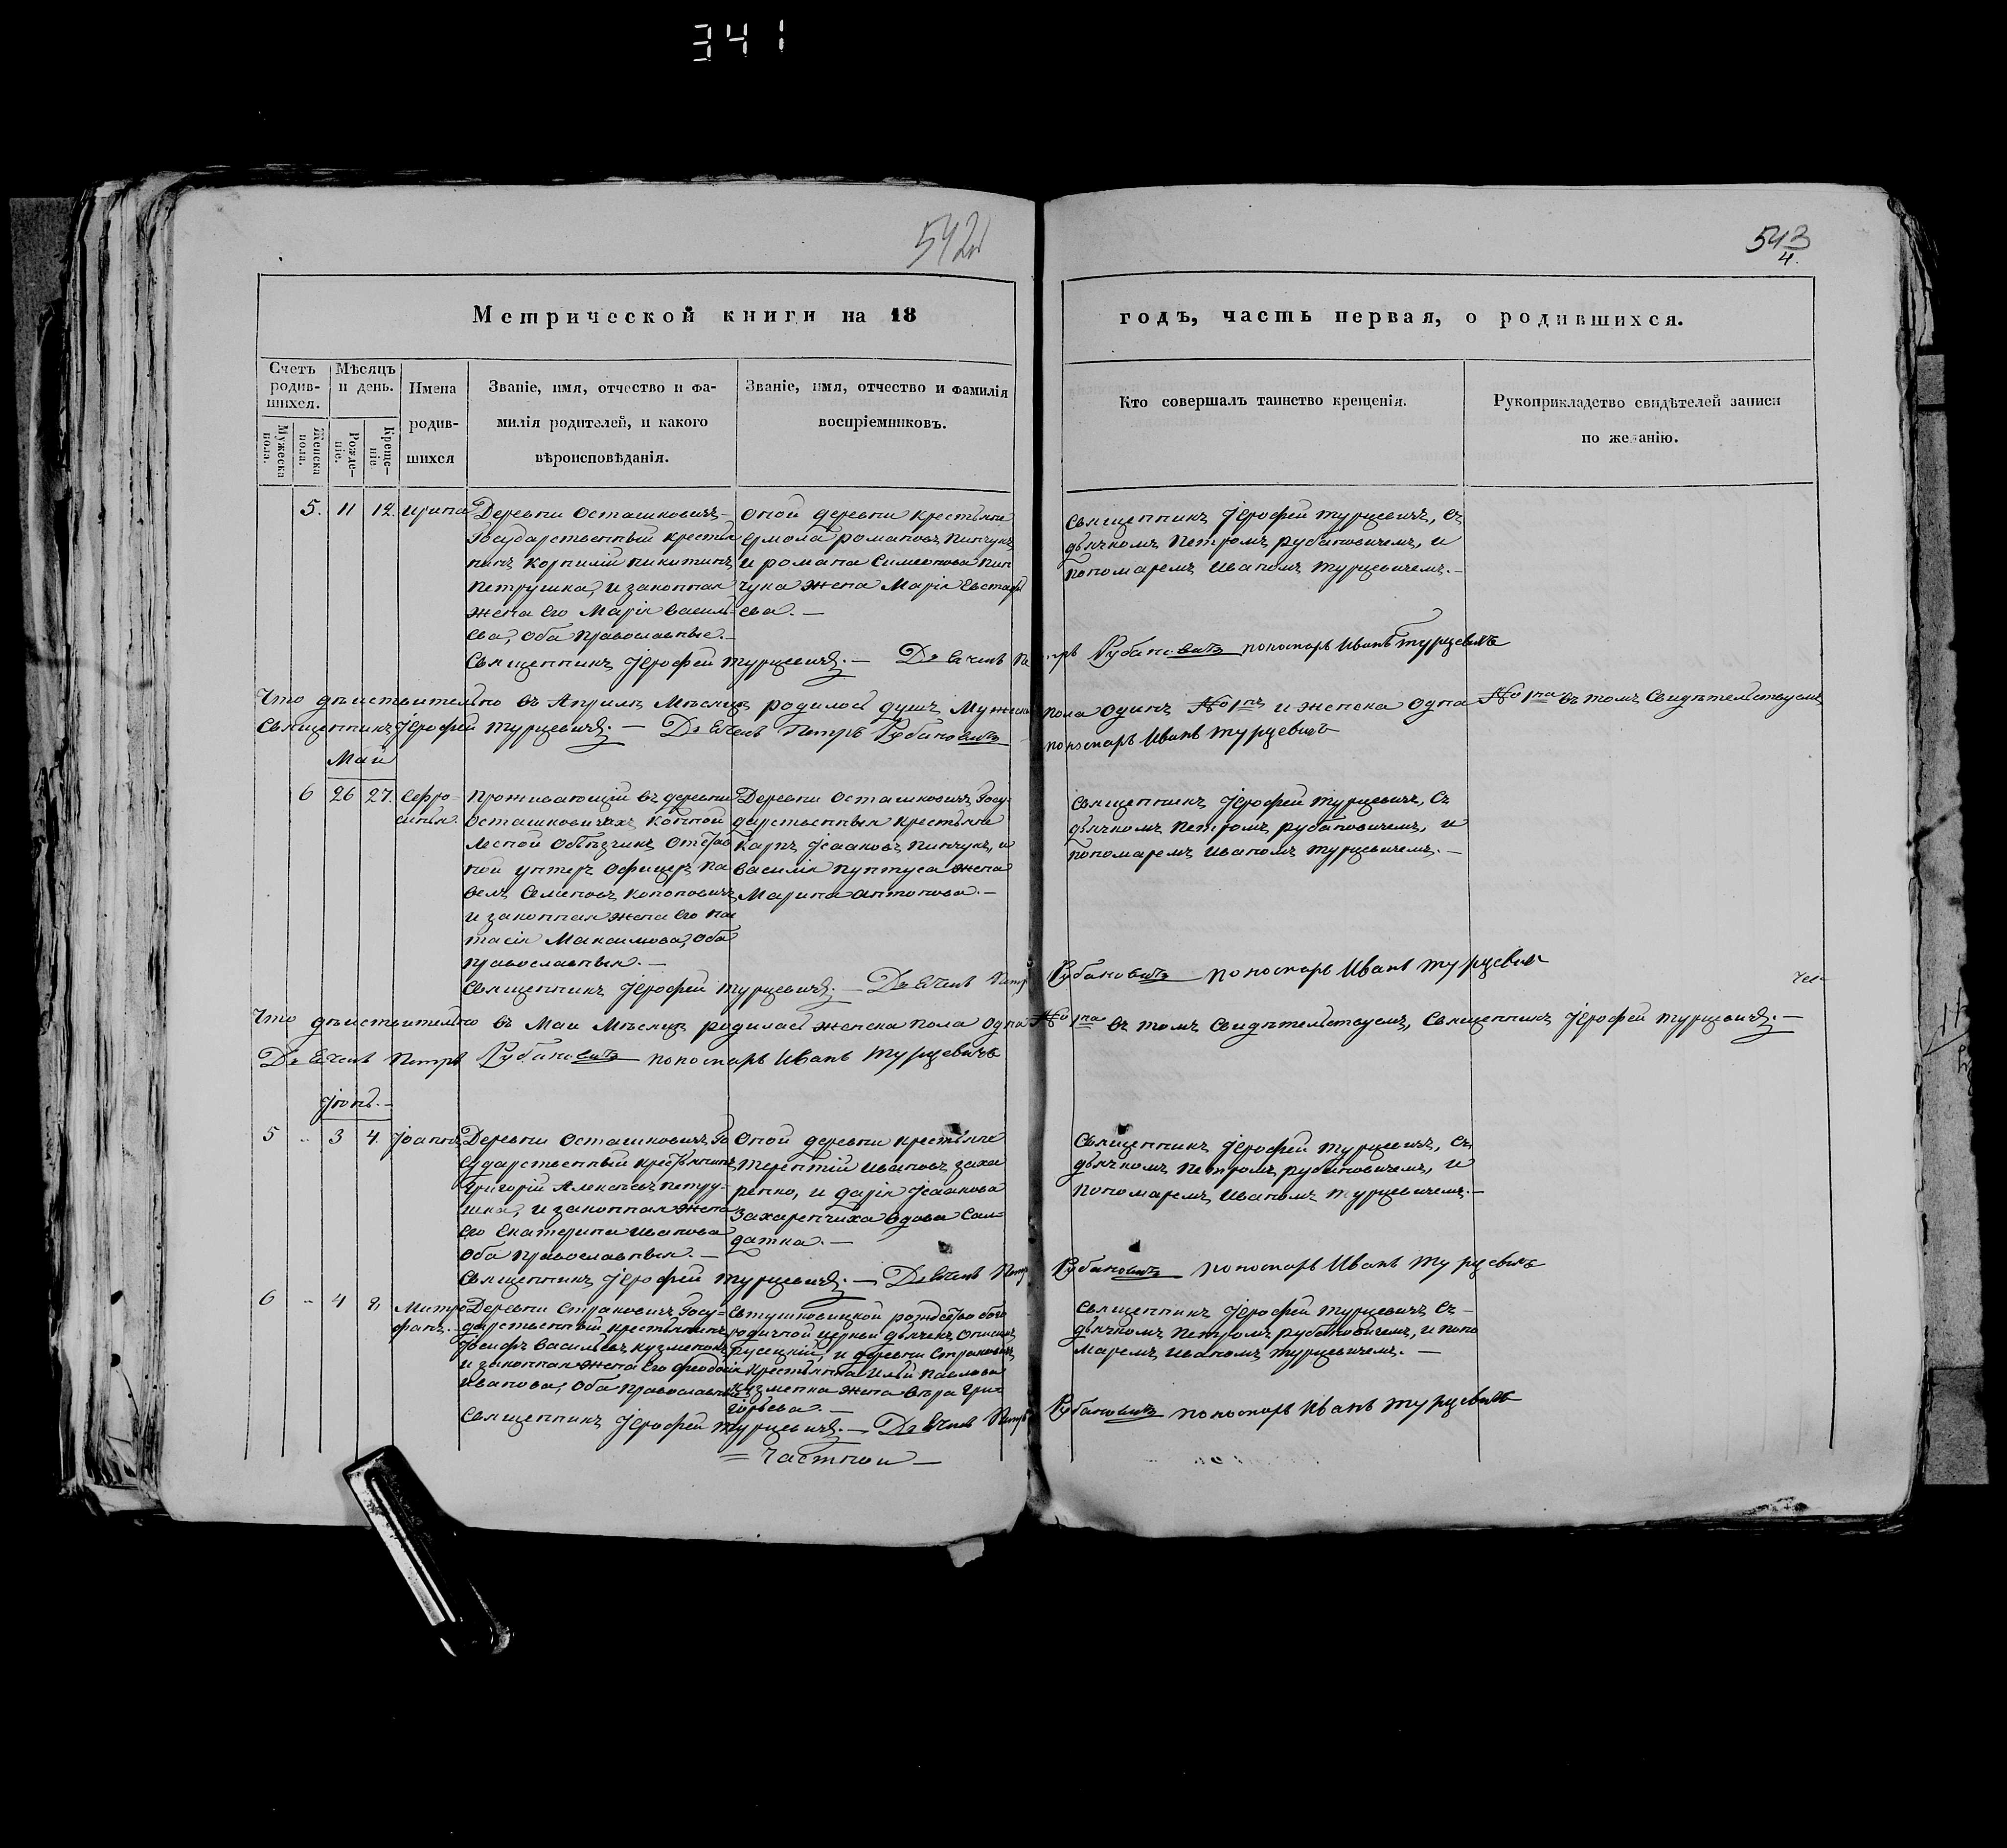 341
542
543
4.
Метрической книги на 18
годъ, часть первая, о родившихся.
Счетъ родив-шихся.
Мужеска пола.
Женска пола.
Мѣсяцъ и день.
Рожде-ніе.
Креще-ніе
Имена родив-шихся
Званіе, имя, отчество и фа-
милія родителей, и какого
вѣроисповѣданія.
Званіе, имя, отчество и фамилія
воспріемниковъ.
Кто совершалъ таинство крещенія.
Рукоприкладство свидѣтелей записи
по желанію.
5. 11 12. Ирина
Деревни Осташковичъ
Государственный крестья
нинъ Корнилій Никитинъ
Петрушка, и законная
жена его Марія Василь-
ева, оба православные.
оной деревни крестьяне
Ермола Романовъ Пинчукъ
и Романа Симеонова Пин
чука жена Марія Евстафі
ева.
Священникъ Іерофей Турцевичъ, съ
дьячкомъ Петромъ Рубановичемъ, и
пономаремъ Иваномъ Турцевичемъ.
Священникъ Іерофей Турцевичъ. — Дьячекъ Петръ Рубановичъ пономарь Иванъ Турцевичъ
Что дѣйствительно въ Априлѣ Мѣсяцѣ родилось душъ Мужеска пола одинъ №1нъ и женска одна №1на въ томъ свидѣтельствуемъ
Священникъ Іерофей Турцевичъ. — Дьячекъ Петръ Рубановичъ пономарь Иванъ Турцевичъ
Май
6 26 27. Ефро-
синія.
Проживающій въ деревни
Осташковичахъ конной
лесной объѣзчикъ отстав
ной унтеръ офицеръ Па
велъ Семеновъ Кононовичъ
и законная жена его На
тасія Максимова, оба
православныя.
Деревни Осташковичъ Госу-
дарственныя крестьяне
Карпъ Ісааковъ Пинчукъ, и
Василія Пунтуса жена
Марина Антонова.
Священникъ Іерофей Турцевичъ, съ
дьячкомъ Петромъ Рубановичемъ, и
пономаремъ Иваномъ Турцевичемъ.
Священникъ Іерофей Турцевичъ. — Дьячекъ Петръ Рубановичъ пономарь Иванъ Турцевичъ
Что дѣйствительно въ Маи Мѣсяцѣ родилась женска пола одна №1на въ томъ свидѣтельствуемъ, Священникъ Іерофей Турцевичъ.
Дьячекъ Петръ Рубановичъ пономарь Иванъ Турцевичъ
Іюнь.
5 .. 3 4. Іоаннъ
Деревни Осташковичъ Го
сударственный крестьянинъ
Григорій Алексѣевъ Петру-
шка, и законная жена
его Екатерина Иванова
оба православныя.
Оной деревни крестьяне
Терентій Ивановъ Заха
ренко, и Дарія Ісаакова
Захаренчиха вдова Сол-
датка.
Священникъ Іерофей Турцевичъ, съ
дьячкомъ Петромъ Рубановичемъ, и
пономаремъ Иваномъ Турцевичемъ.
Священникъ Іерофей Турцевичъ. — Дьячекъ Петръ Рубановичъ пономарь Иванъ Турцевичъ
6 .. 4 8. Митро
фанъ.
Деревни Страковичъ Госу-
дарственный крестьянинъ
Іосифъ Васильевъ Кузменокъ
и законная жена его Феодосія
Иванова, оба православныя
Евтушковицкой рождество бого
родичной церкви дьячекъ
Русецкій, и деревни Страковичъ
крестьянина Ильи Павлова
Кузменка жена Вѣра Гри-
горьева.
Священникъ Іерофей Турцевичъ съ
дьячкомъ Петромъ Рубановичемъ, и поно
маремъ Иваномъ Турцевичемъ.
Священникъ Іерофей Турцевичъ. — Дьячекъ Петръ Рубановичъ пономарь Иванъ Турцевичъ